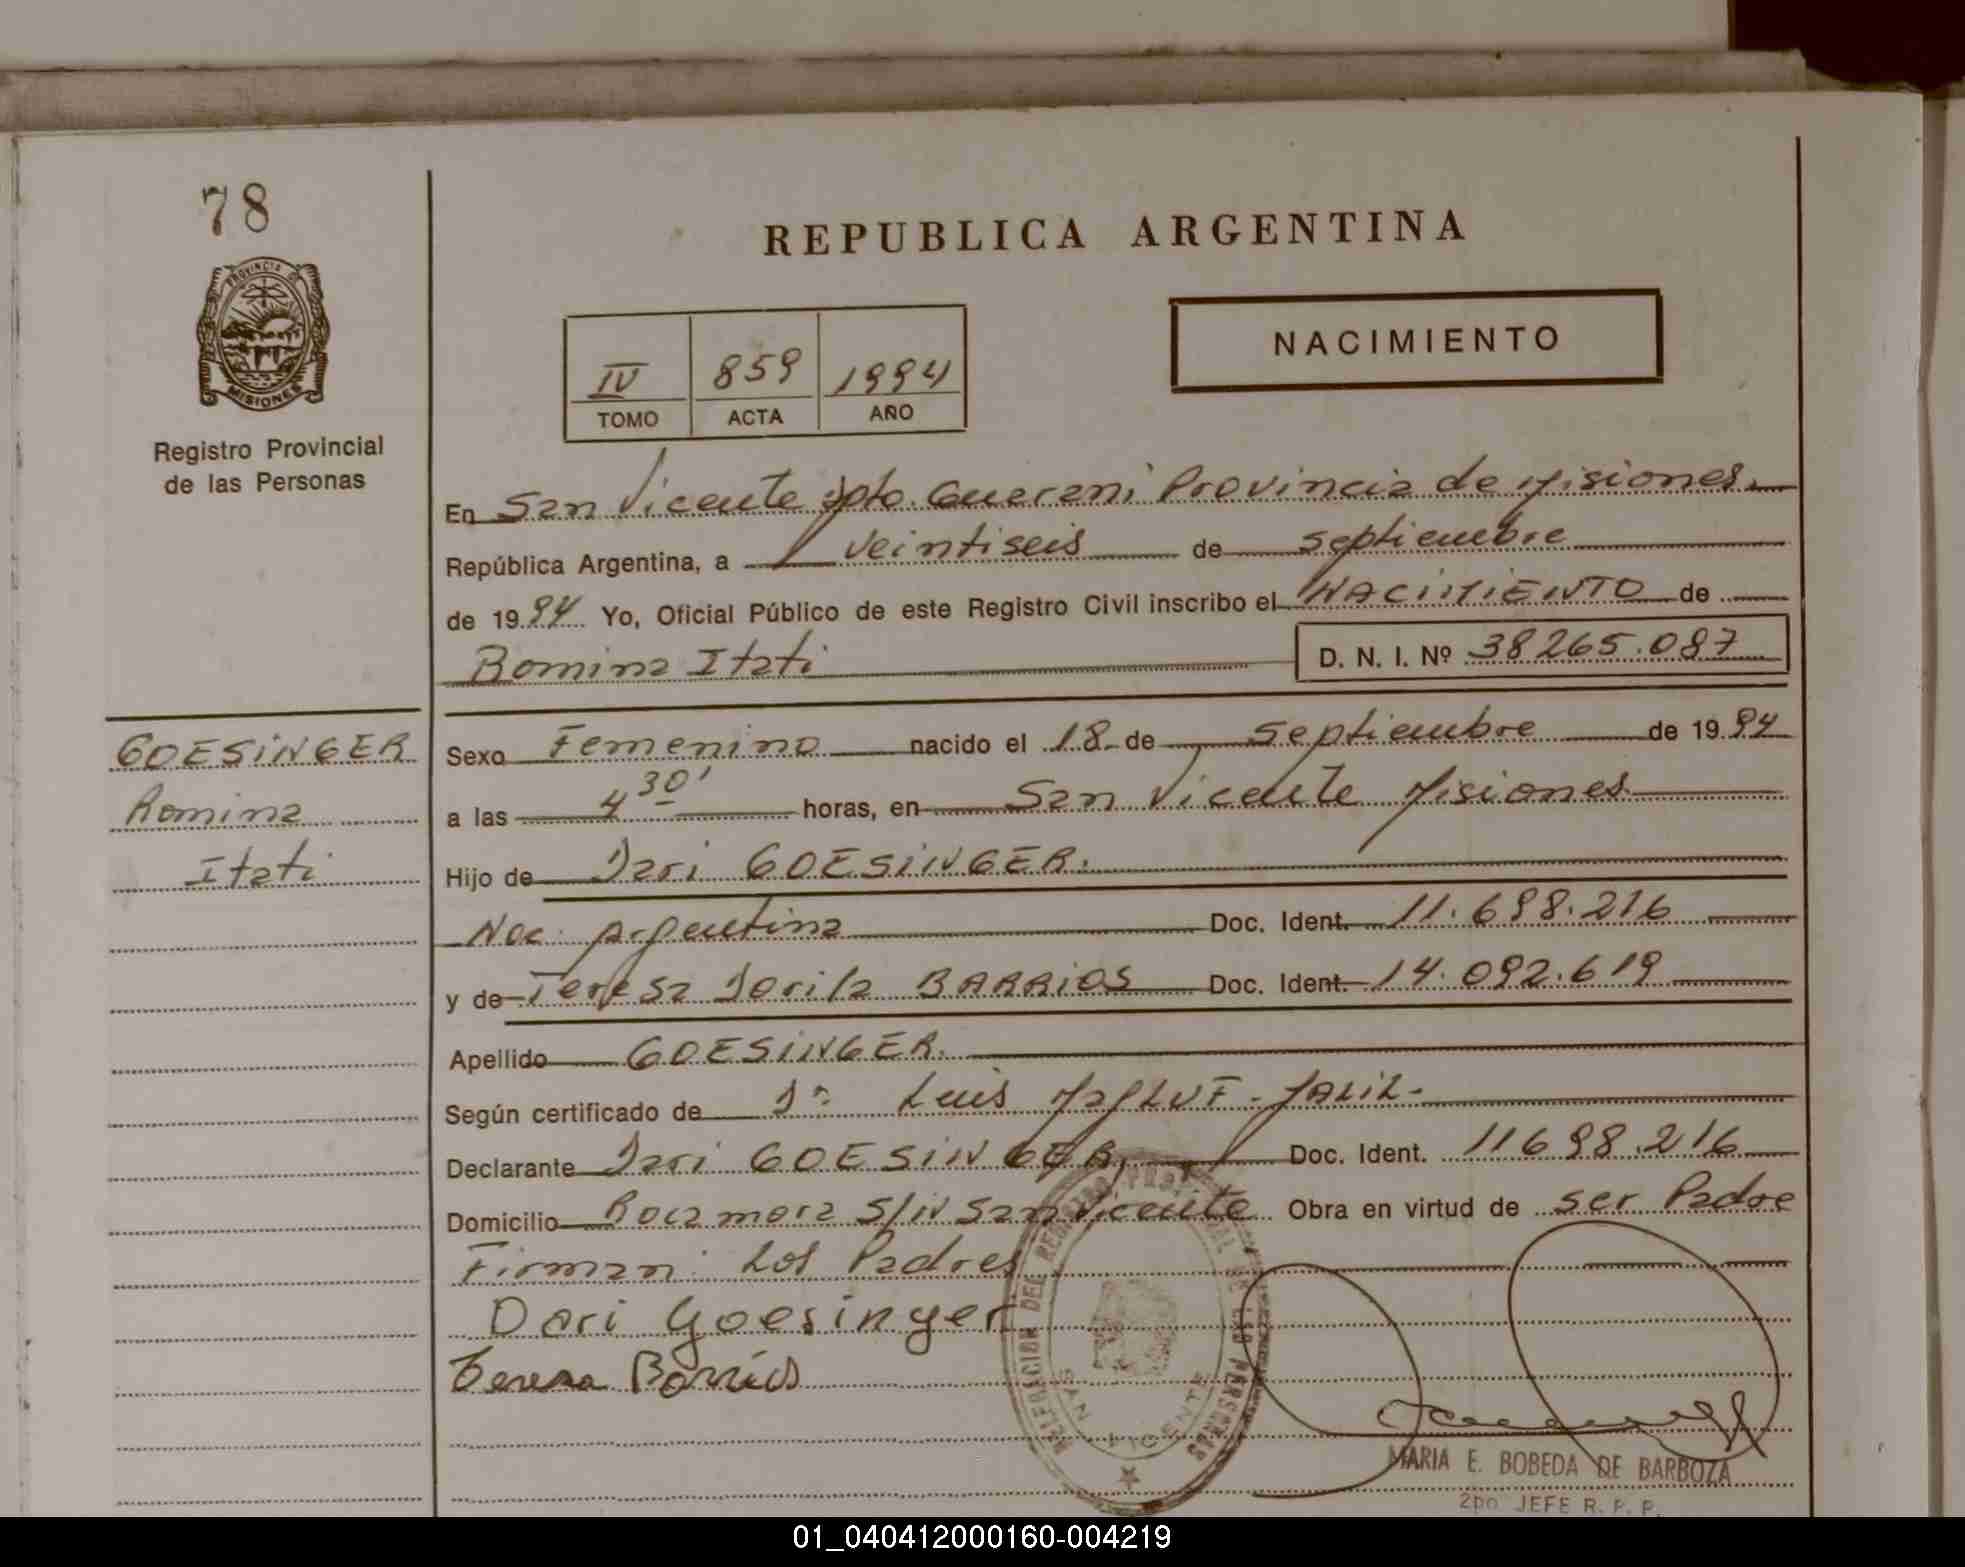 78
PROVINCIA DE
MISIONES
Registro Provincial
de las Personas
REPUBLICA ARGENTINA
IV 859 1994
TOMO ACTA AÑO
NACIMIENTO
En San Vicente Dpto. Guarani Provincia de Misiones.
República Argentina, a veintiseis de septiembre
de 1994 Yo, Oficial Público de este Registro Civil inscribo el NACIMIENTO de
Romina Itati D. N. I. Nº 38265.087
GOESINGER
Romina
Itati
Sexo Femenino nacido el 18 de septiembre de 1994
a las 4 30' horas, en San Vicente Misiones
Hijo de Dari GOESINGER.
Nac. Argentina Doc. Ident. 11.698.216
y de Teresa Dorila BARRIOS Doc. Ident. 14.092.619
Apellido GOESINGER.
Según certificado de Dr. Luis JALIL.
Declarante Dari GOESINGER, Doc. Ident. 11698.216
Domicilio Rocamora S/N San Vicente Obra en virtud de ser Padre
Firman: Los Padres
Dari Goesinger
Teresa Barrios
DELEGACION DEL REGISTRO PROVINCIAL DE LAS PERSONAS
SAN VICENTE
MARIA E. BOBEDA DE BARBOZA
2do JEFE R. P. P.
01_040412000160-004219